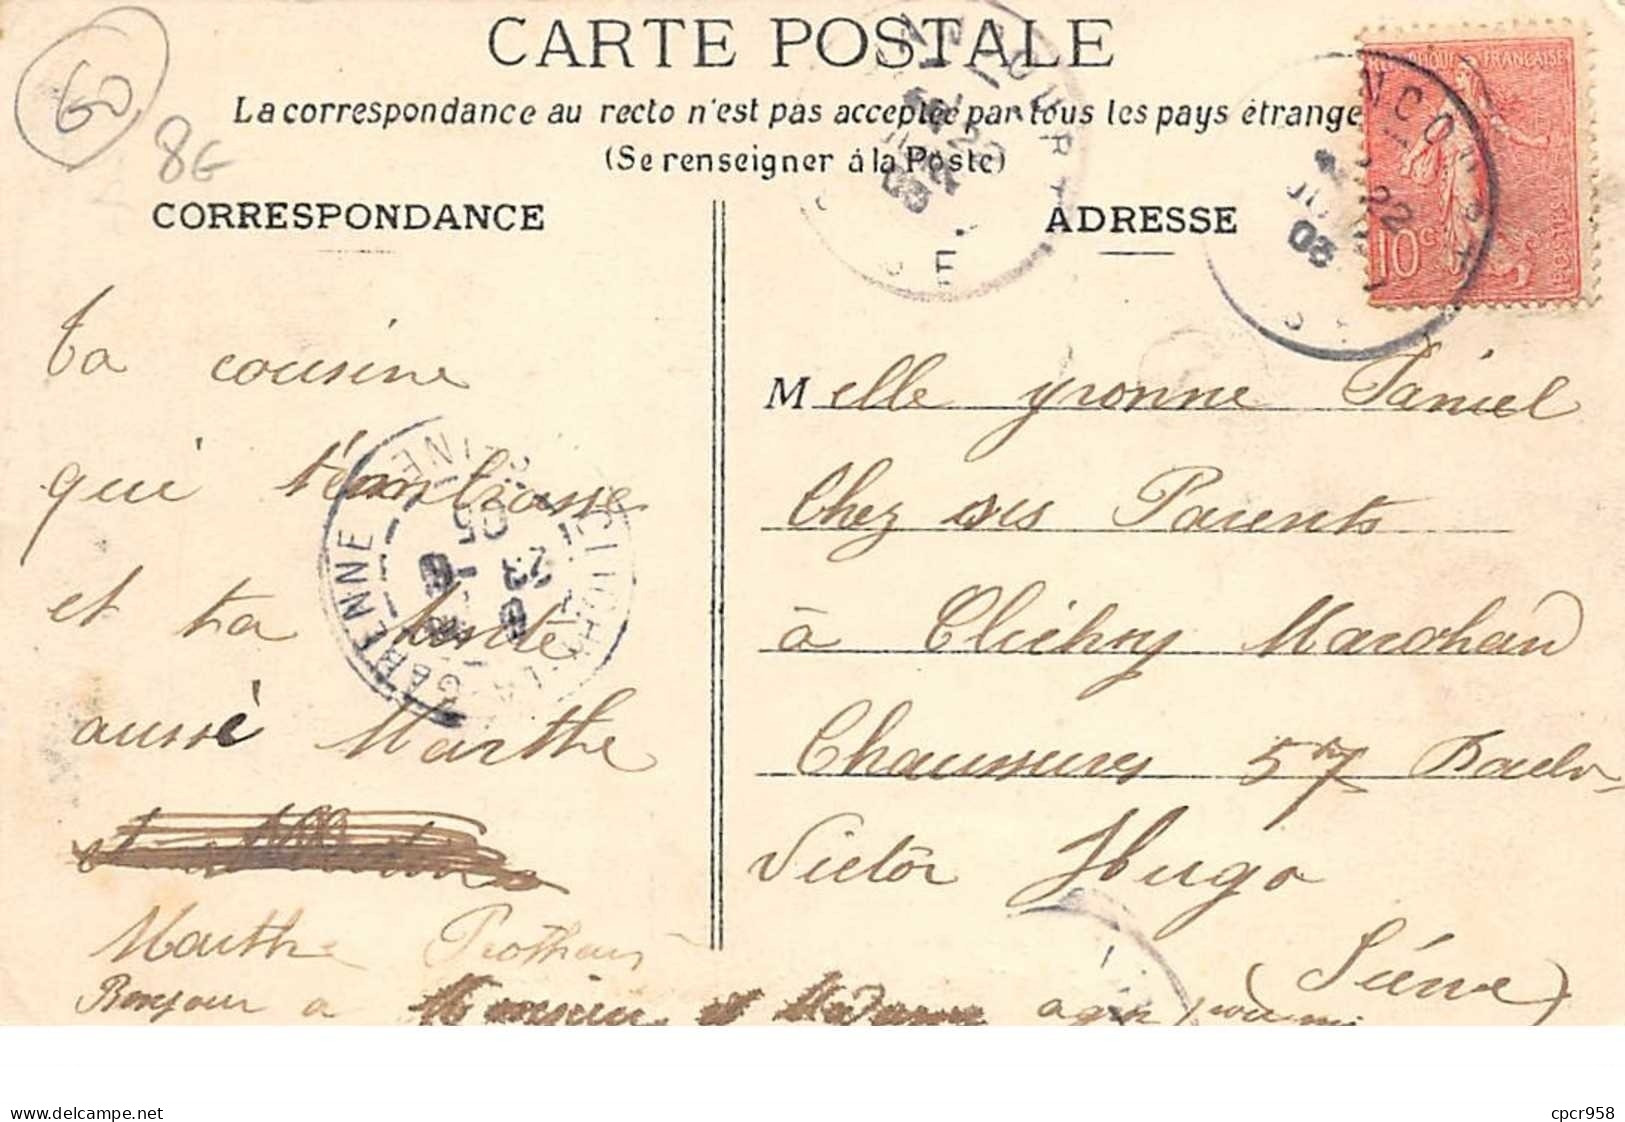 CARTE POSTALE
La correspondance au recto n'est pas acceptée par tous les pays étrange
(Se renseigner à la Poste)
60
8G
CORRESPONDANCE
ta cousine
qui t'embrasse
et ta tante
aussi Marthe
Marthe
Bonjour a Monsieur et Madame
ADRESSE
RÉPUBLIQUE FRANÇAISE
10c
POSTES
Melle yvonne Daniel
Chez ses Parents
à Clichy Marchand
Chaussures 57 Boulv
Victor Hugo
(Seine)
LA GARENNE
SEINE
23
05
22
05
delcampe.net
cpcr958